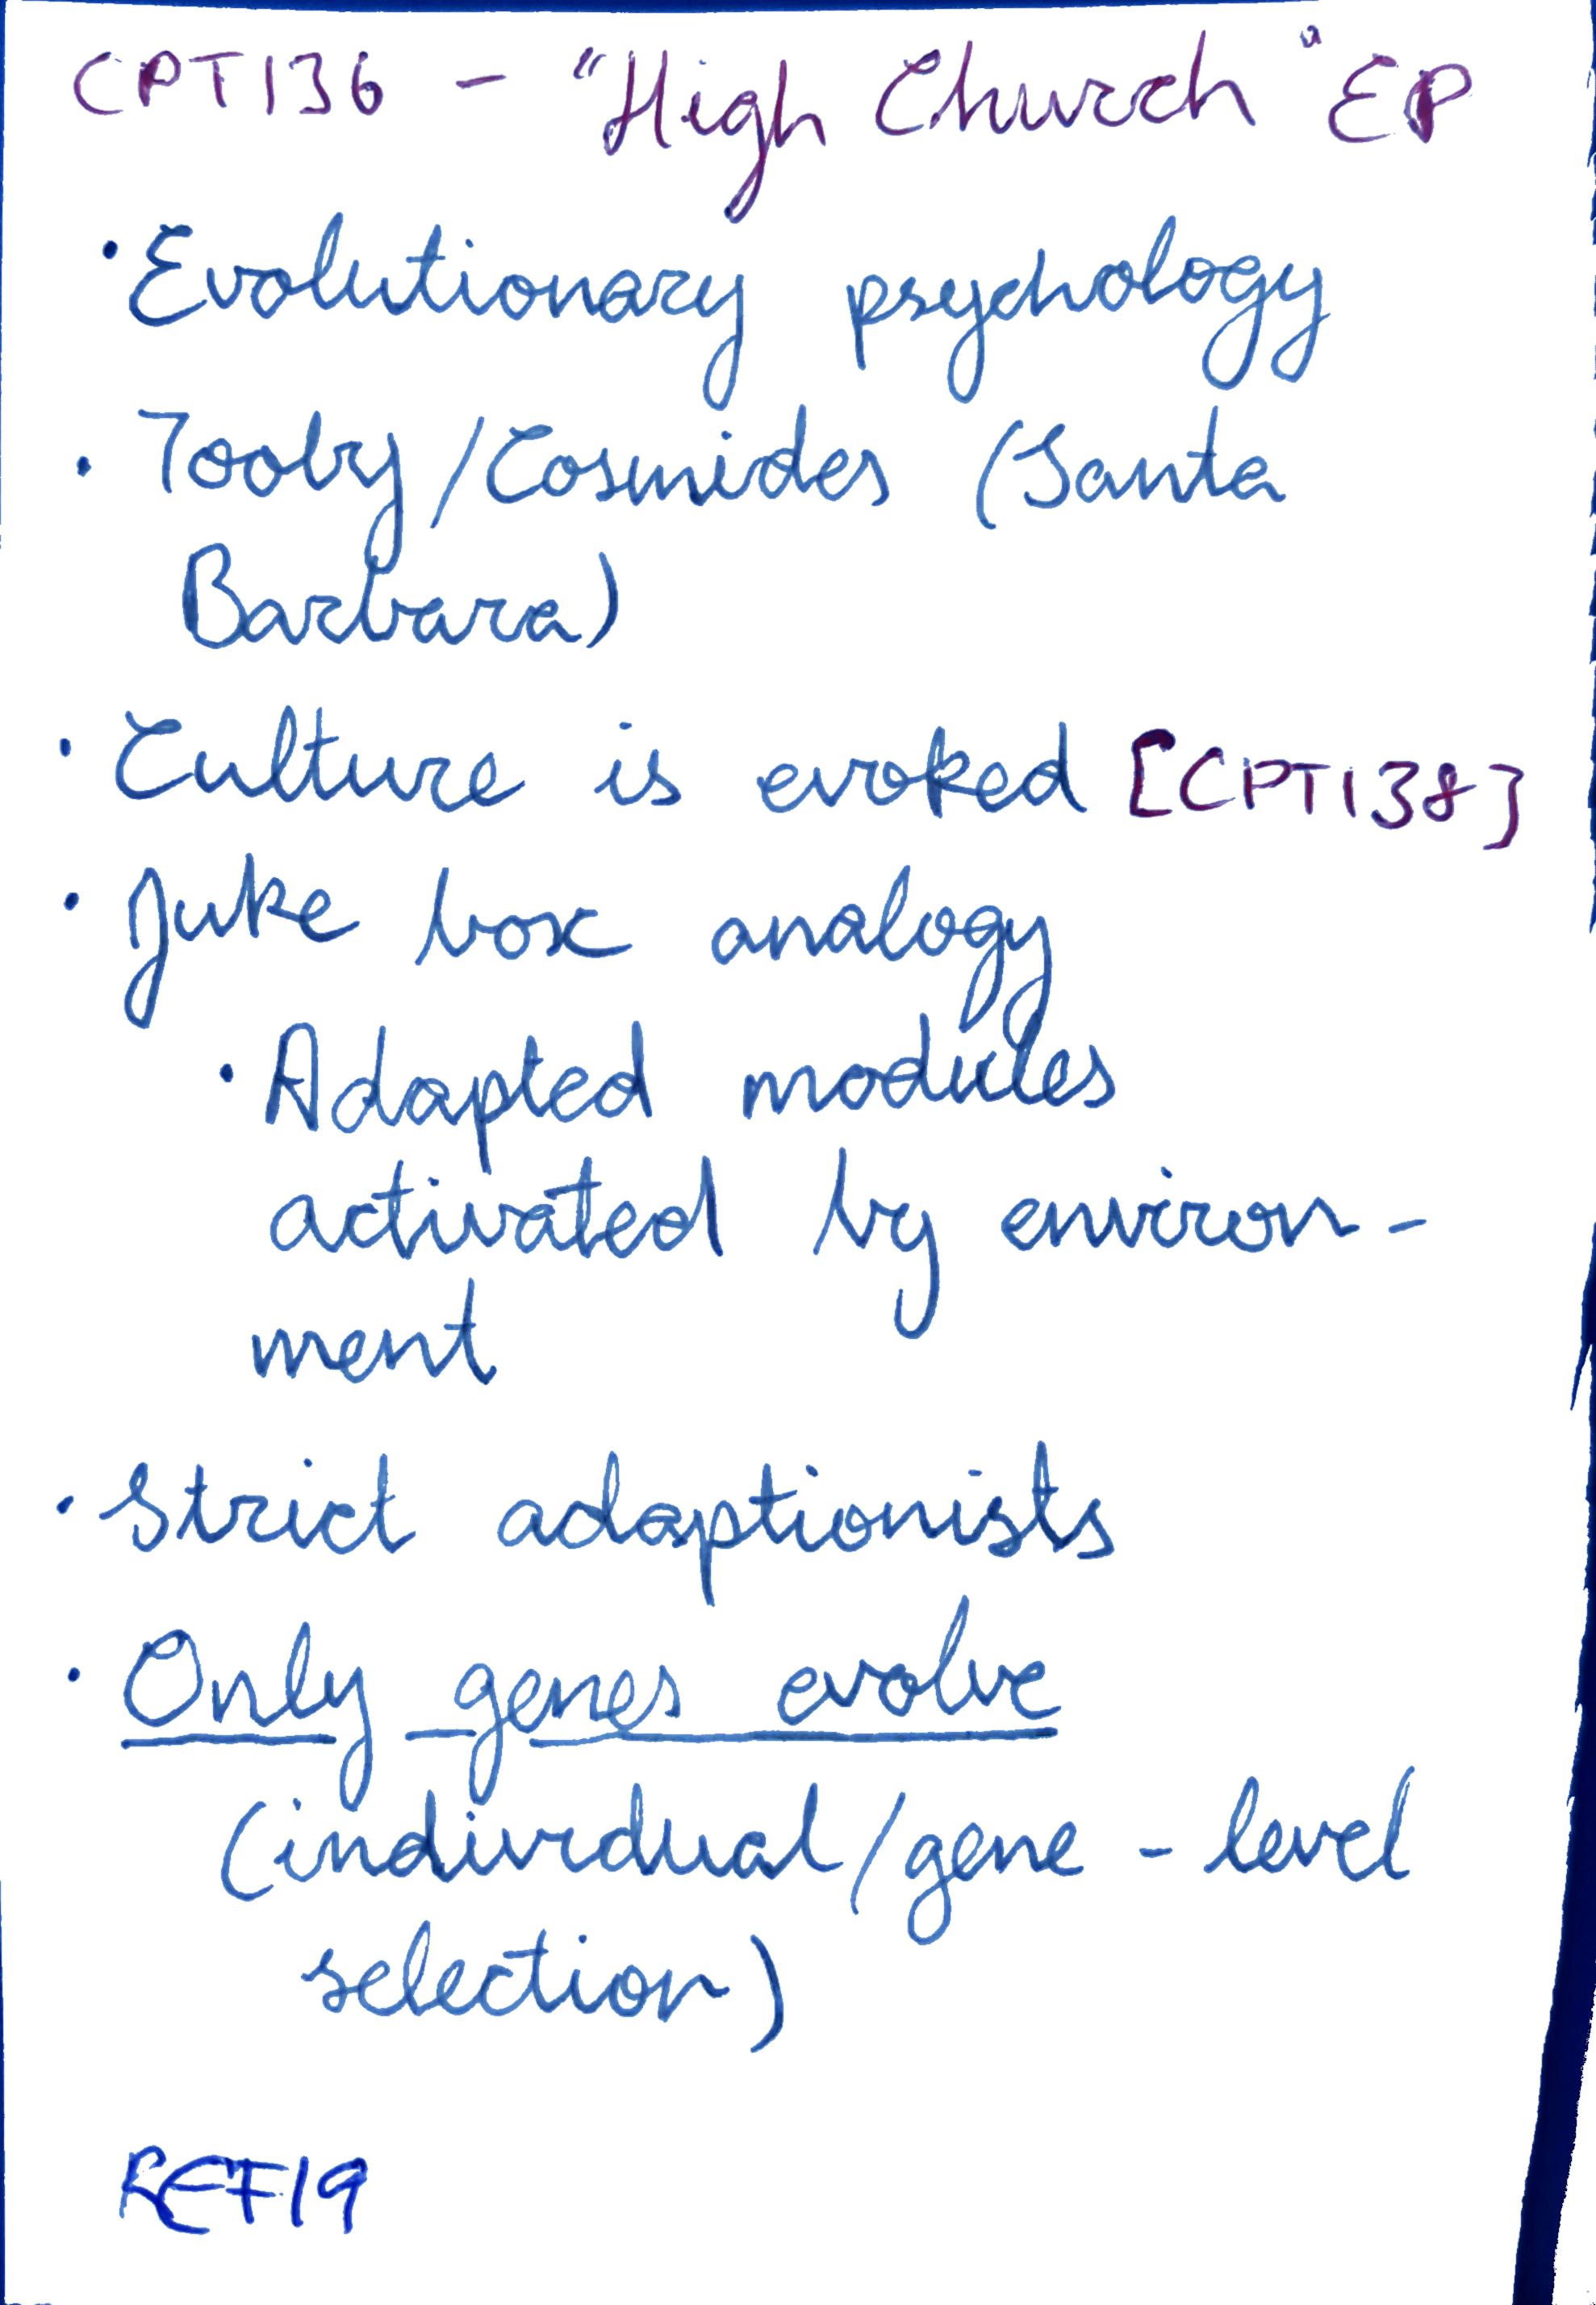 CPT136 - "High Church" EP
· Evolutionary psychology
· Tooby/Cosmides (Santa
Barbara)
· Culture is evoked [CPT138]
· Juke box analogy
· Adapted modules
activated by environ-
ment
· Strict adaptionists
· Only genes evolve
(individual/gene-level
selection)
REF19